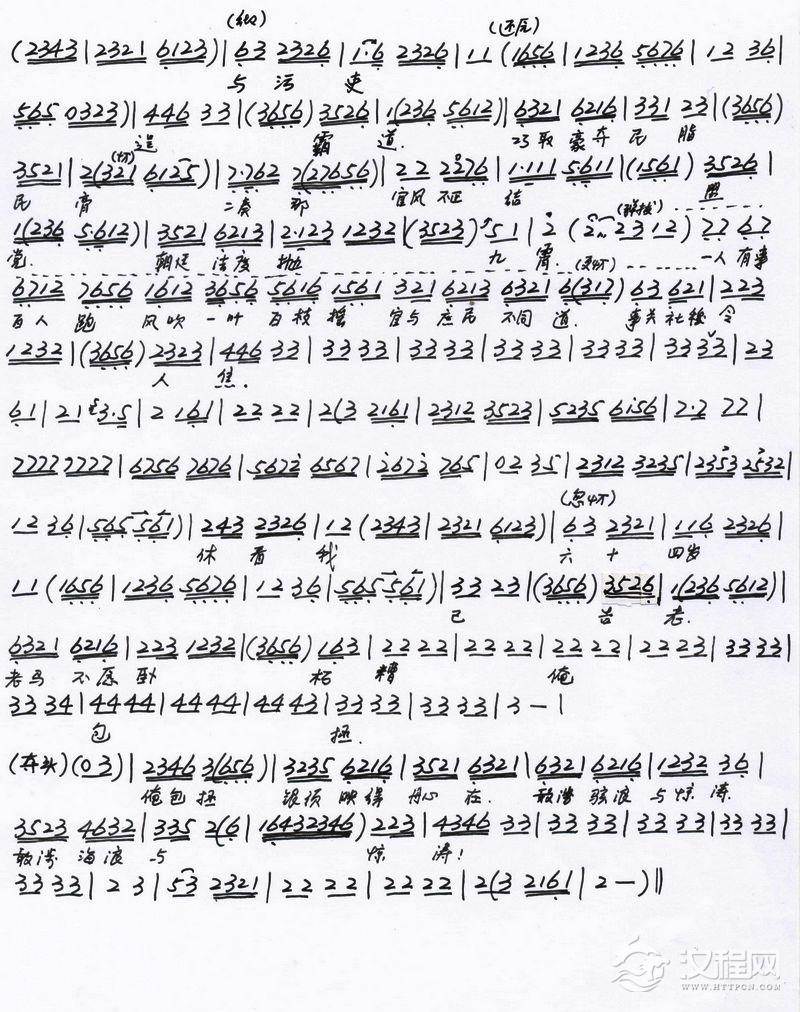 (2343|2321 6123)|63 2326|1·6 2326|11(1656|1236 5676|12 36|
与 污 吏
565 0323)|446 33|(3656) 3526|1(236 5612)|6321 6216|331 23|(3656)
逞 霸 道. 巧取豪夺 民 脂
3521|2(321 6125)|7·762 7(27656)|22 2276|1·111 5611|(1561) 3526|
民 膏 二奏 那 官风不正 结 盟
1(236 5612)|3521 6213|2·123 1232|(3523) 51|2 (2~ 2312) 77 67
党. 朝廷 法度 抛 九 霄. 一人有事
6712 7656 1612 3656 5616 1561 321 6213 6321 6(317) 63 621|223
百人 跑 风吹一叶 百枝 摇 官与庶民 不同 道. 事关社稷 令
1232|(3656) 2323|446 33|33 33|33 33|33 33|33 33|33 33|23
人 焦.
61|21 3·5|2 161|22 22|2(3 2161|2312 3523|5235 6156|2·2 22|
7777 7777|6756 7676|5672 6567|2672 765|02 35|2312 3235|2353 2532|
12 36|565 561)|243 2326|12 (2343|2321 6123)|63 2321|116 2326|
休 看 我 六 十 四岁
11 (1656|1236 5676|12 36|565 561)|33 23|(3656) 3526|1(236 5612)|
已 苍 老.
6321 6216|223 1232|(3656) 163|22 22|22 22|22 22|22 23|33 33|
老马 不愿 卧 枥 糟 俺
33 34|44 44|44 44|44 43|33 33|33 33|3 — |
包 拯.
(夺头)(03)|2346 3(656)|3235 6216|3521 6321|6321 6216|1232 36|
俺包 拯 银须 映得 丹心 在. 敢涛 骇浪 与 惊 涛.
3523 4632|335 2(6|16432346) 223|4346 33|33 33|33 33|33 33|
敢涛 海浪 与 惊 涛!
33 33|2 3|53 2321|22 22|22 22|2(3 2161|2 —)‖
汉程网
WWW.HTTPCN.COM